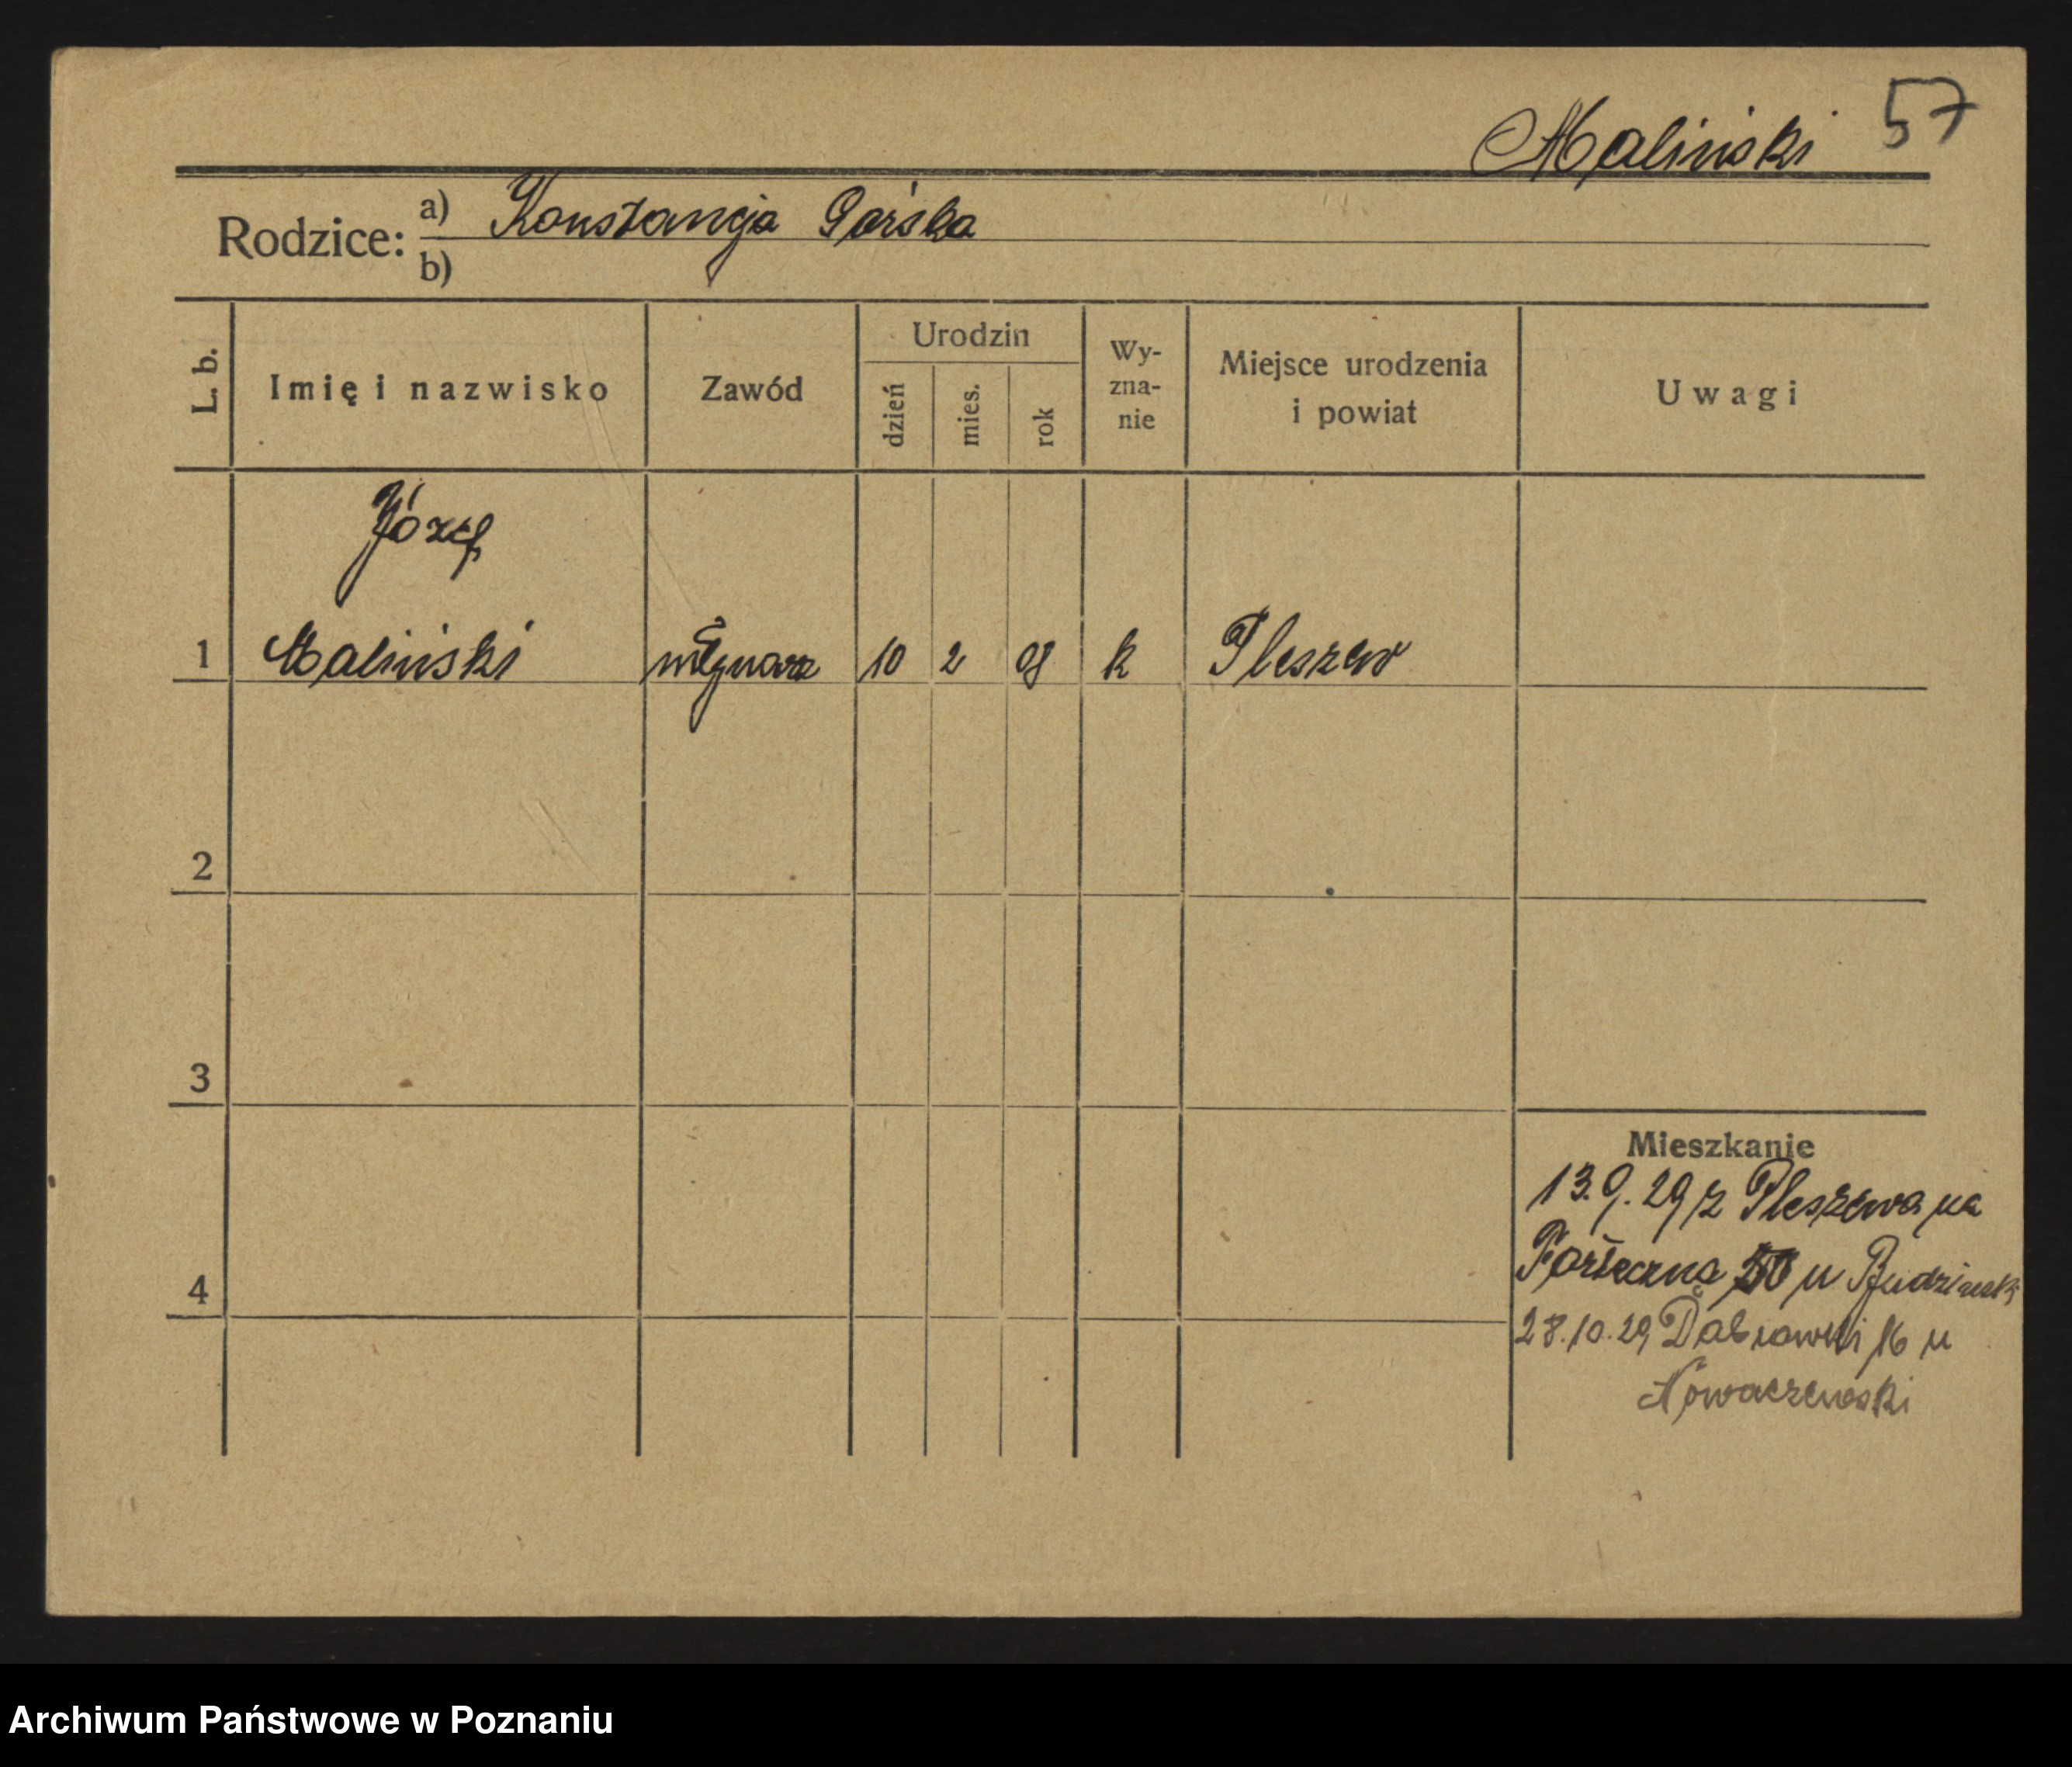 Maliński 57
Rodzice: a) Konstancja Górska
b)
L. b. Imię i nazwisko Zawód Urodzin dzień mies. rok Wyzna-nie Miejsce urodzenia i powiat Uwagi
Józef
1 Maliński młynarz 10 2 08 k Pleszew
2
3
Mieszkanie
13.9.29 z Pleszewa na
4 u Budzińsk
28.10.29 Dąbrówki 16 u
Nowaczewski
Archiwum Państwowe w Poznaniu